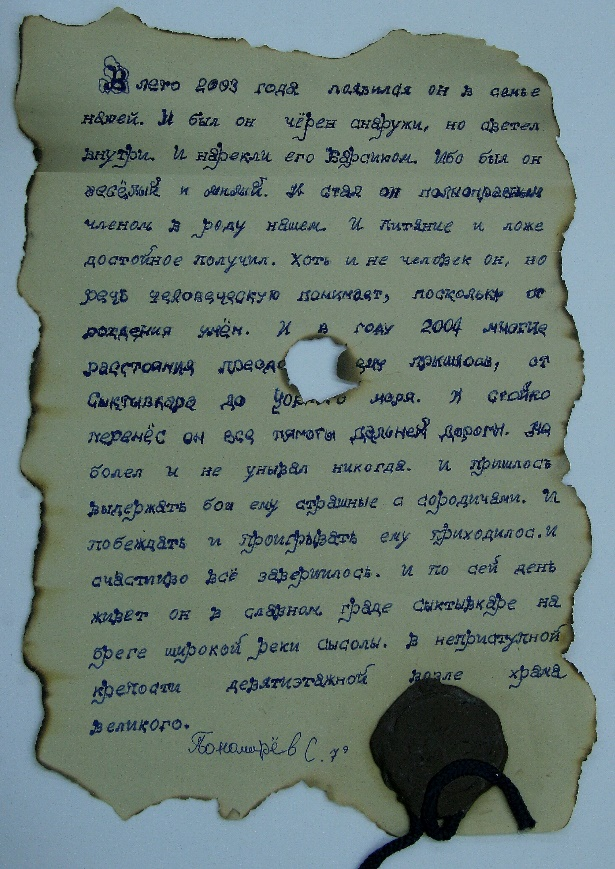 В лето 2003 года появился он в семье
нашей. И был он чёрен снаружи, но светел
внутри. И нарекли его Барсиком. Ибо был он
весёлый и милый. И стал он полноправным
членом в роду нашем. И питание и ложе
достойное получил. Хоть и не человек он, но
речь человеческую понимает, поскольку от
рождения умён. И в году 2004 многие
расстояния ему пришлось, от
Сыктывкара до моря. И стойко
перенёс он все тяготы дальней дороги. Не
болел и не унывал никогда. И пришлось
выдержать бои ему страшные с сородичами. И
побеждать и проигрывать ему приходилос. И
счастливо всё завершилось. И по сей день
живёт он в славном граде Сыктывкаре на
бреге широкой реки Сысолы. В неприступной
крепости девятиэтажной возле храма
великого.
Пономарёв С. 7э